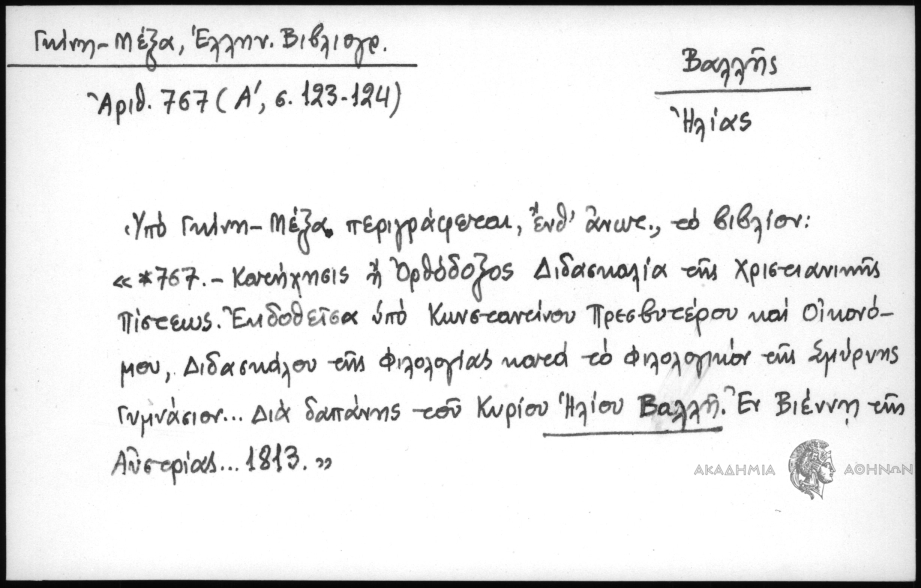 Γκίνη-Μέξα, Ἑλλην. Βιβλιογρ.
Ἀριθ. 767 (Α', σ. 123-124)
Βαλλῆς
Ἠλίας
Ὑπό Γκίνη-Μέξα περιγράφεται, ἔνθ' ἄνωτ., τό βιβλίον:
«*767.- Κατήχησις ἤ Ὀρθόδοξος Διδασκαλία τῆς Χριστιανικῆς
Πίστεως. Ἐκδοθεῖσα ὑπό Κωνσταντίνου Πρεσβυτέρου καί Οἰκονό-
μου, Διδασκάλου τῆς Φιλολογίας κατά τό Φιλολογικόν τῆς Σμύρνης
Γυμνάσιον... Διά δαπάνης τοῦ Κυρίου Ἠλίου Βαλλῆ. Ἐν Βιέννῃ τῆς
Αὐστρίας... 1813.»
ΑΚΑΔΗΜΙΑ ΑΘΗΝΩΝ